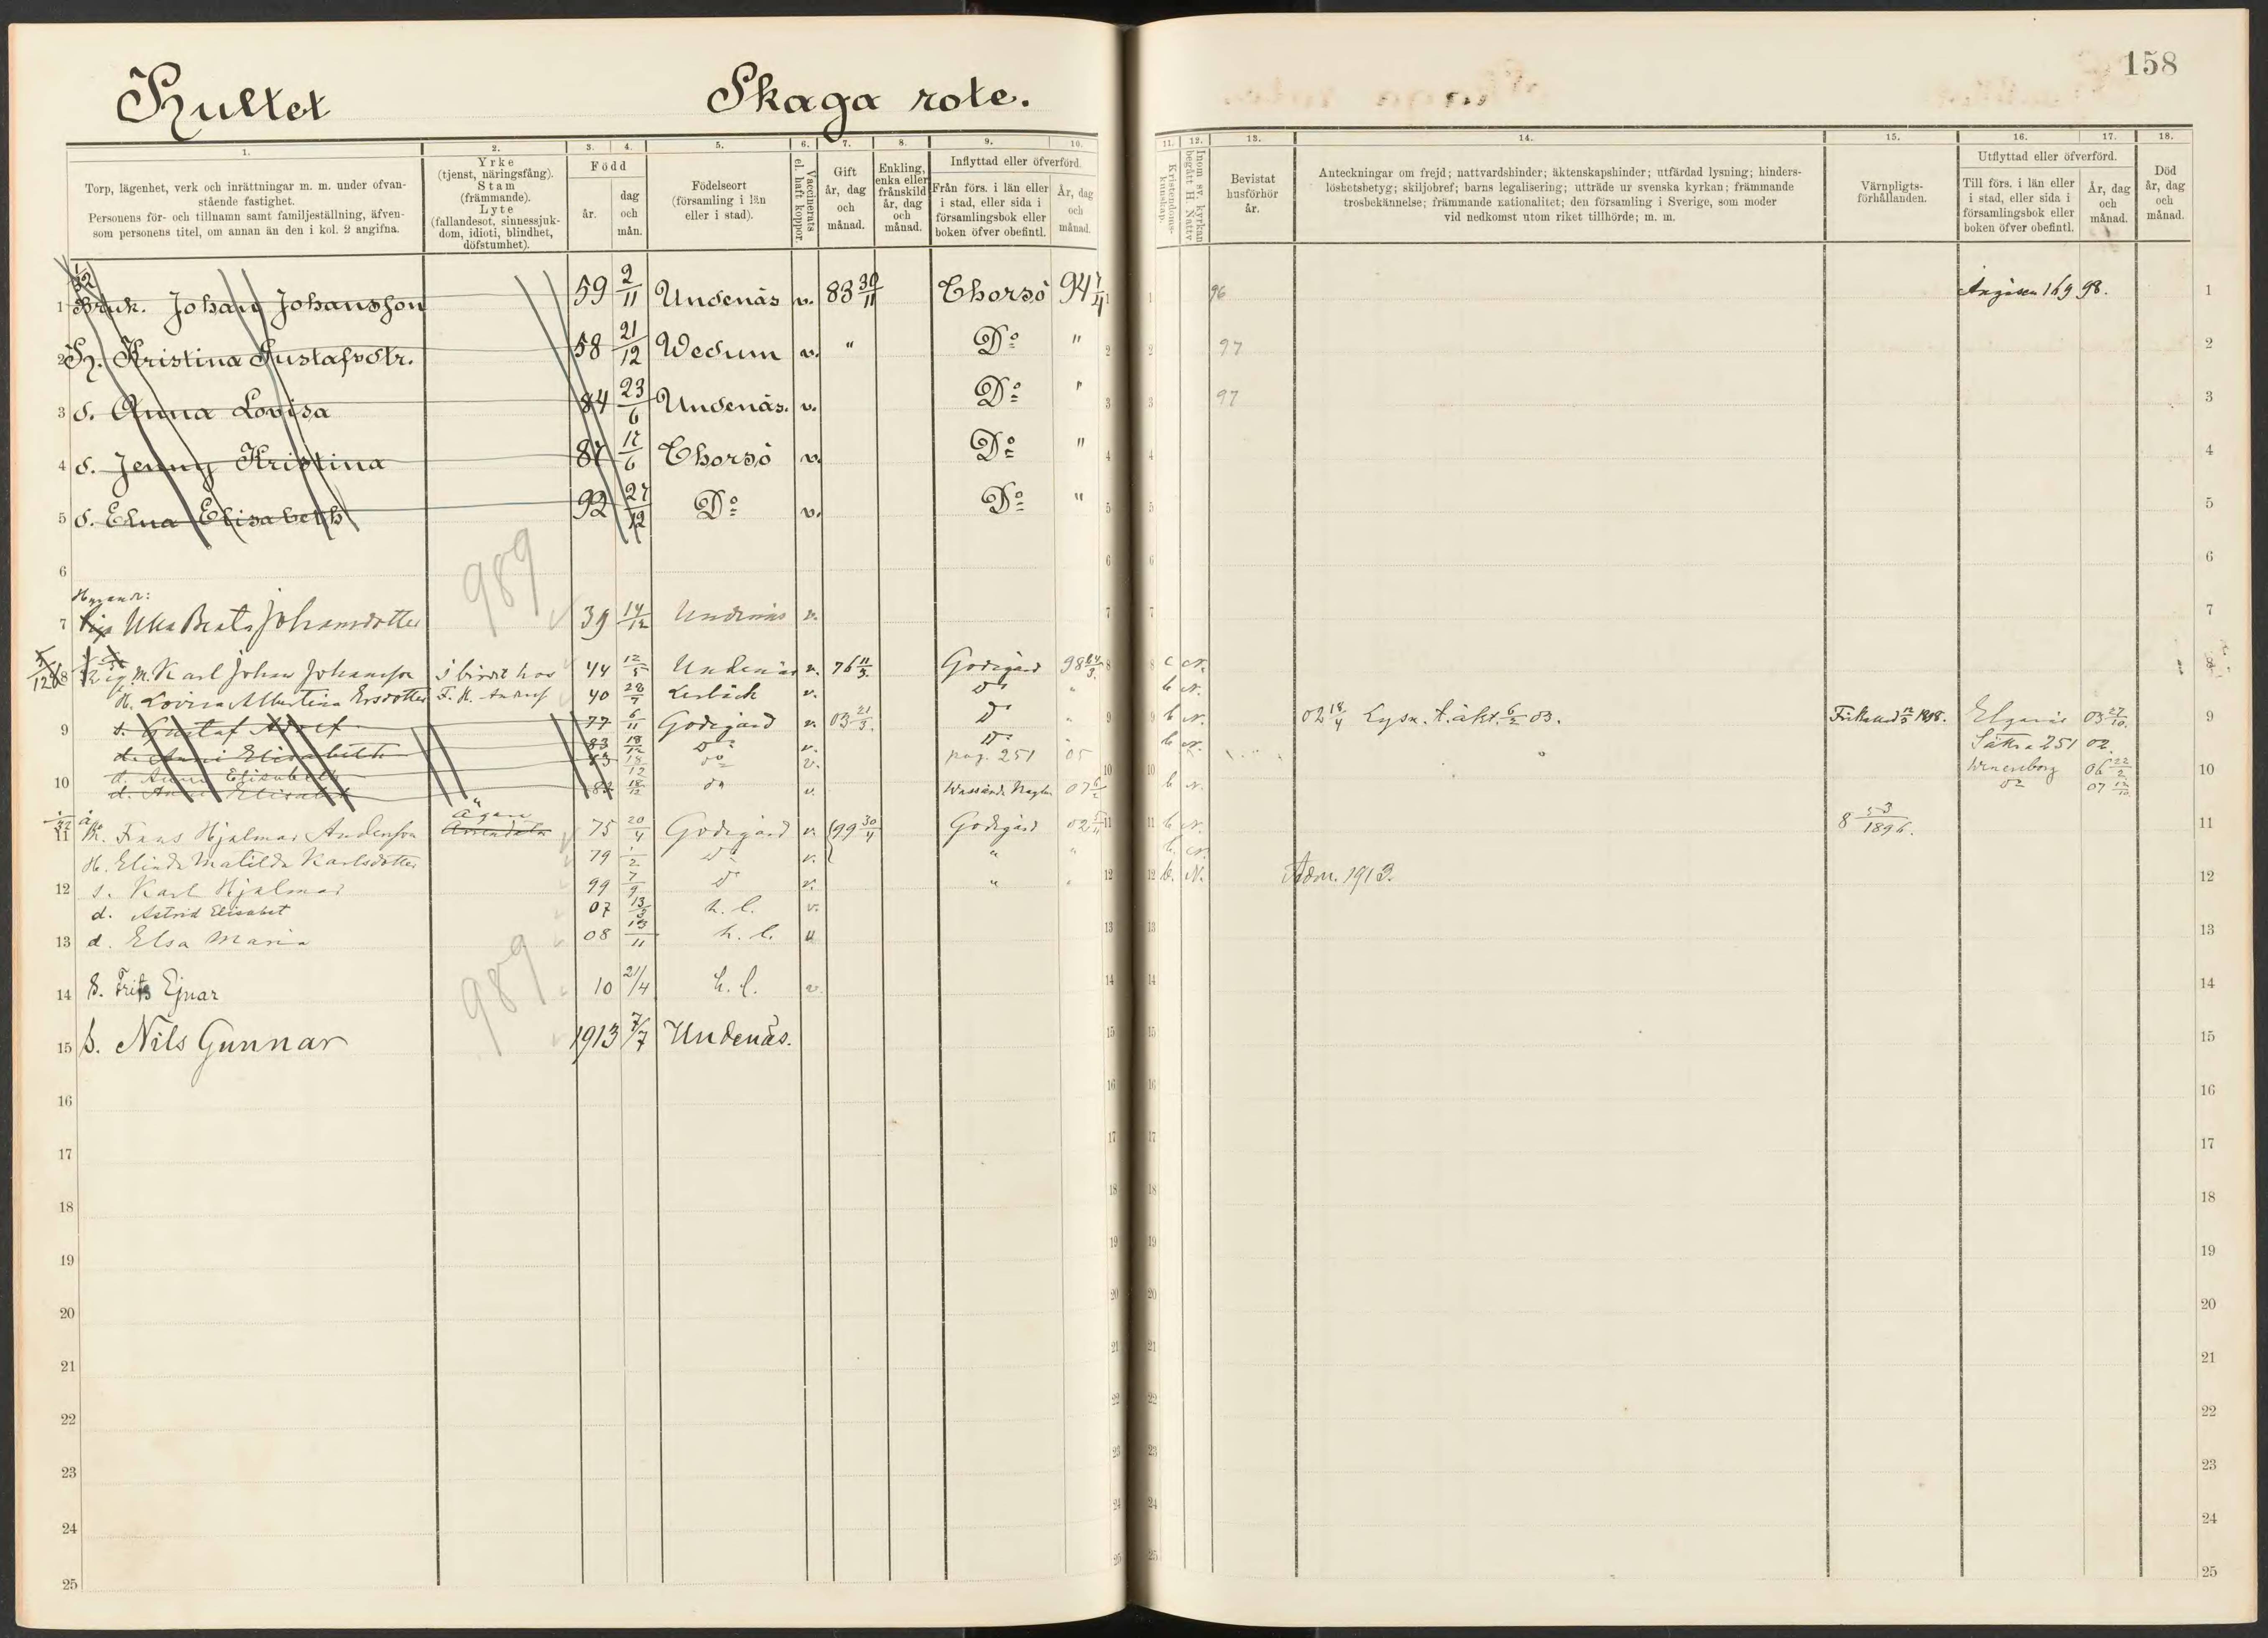 Hultet Skaga rote. 158
1. 2. 3. 4. 5. 6. 7. 8. 9. 10. 11. 12. 13. 14. 15. 16. 17. 18.
Torp, lägenhet, verk och inrättningar m. m. under ofvan-
stående fastighet.
Personens för- och tillnamn samt familjeställning, äfven-
som personens titel, om annan än den i kol. 2 angifna.
Yrke
(tjenst, näringsfång).
Stam
(främmande).
Lyte
(fallandesot, sinnessjuk-
dom, idioti, blindhet,
döfstumhet).
Född
år.
dag
och
mån.
Födelseort
(församling i län
eller i stad).
Vaccinerats
el. haft koppor.
Gift
år, dag
och
månad.
Enkling,
enka eller
frånskild
år, dag
och
månad.
Inflyttad eller öfverförd.
Från förs. i län eller
i stad, eller sida i
församlingsbok eller
boken öfver obefintl.
År, dag
och
månad.
Kristendoms-
kunskap.
Inom sv. kyrkan
begått H. Nattv
Bevistat
husförhör
år.
Anteckningar om frejd; nattvardshinder; äktenskapshinder; utfärdad lysning; hinders-
löshetsbetyg; skiljobref; barns legalisering; utträde ur svenska kyrkan; främmande
trosbekännelse; främmande nationalitet; den församling i Sverige, som moder
vid nedkomst utom riket tillhörde; m. m.
Värnpligts-
förhållanden.
Utflyttad eller öfverförd.
Till förs. i län eller
i stad, eller sida i
församlingsbok eller
boken öfver obefintl.
År, dag
och
månad.
Död
år, dag
och
månad.
1/32
1 Bruk. Johan Johansson 59 2/11 Undenäs v. 83 30/11 Thorsö 94 1 96 169 98. 1
2 H. Kristina Gustafsdtr. 58 21/12 Wedum v. " Do " 2 97 2
3 d. Anna Lovisa 84 23/6 Undenäs. v. Do " 3 97 3
4 d. Jenny Kristina 87 17/6 Thorsö v. Do " 4 4
5 d. Elna Elisabeth 92 27/12 Do v. Do " 5 5
6 989 6
7 Beata Johansdotter 39 14/12 Undenäs v. 7
8 Karl Johan Johansson 44 12/5 Undenäs v. 76 11/3. Godegård 98 8
H. Lovisa Albertina Ersdotter 40 28/7 Lerbäck v. Do "
9 s. Gustaf Adolf 77 6/11 Godegård v. 03 21/3. Do " b N. 02 18/4 Lysn. t. äkt. 6/2 03. Elgarås 03 27/10. 9
d. Anna Elisabeth 83 18/12 Do v. Do " b N. Sätra 251 02.
d. Anna Elisabeth 83 18/12 do v. pag. 251 05 Wenersborg 06 22/2
10 d. Anna Elisabet 83 18/12 do v. 07 b N. do 07 10
11 Frans Hjalmar Andersson ägare Arrendator 75 20/4 Godegård v. 99 30/4 Godegård 02 5/11 b N. 8 53/1896. 11
H. Elinda Matilda Karlsdotter 79 1/2 Do v. " " b. N.
12 s. Karl Hjalmar 99 7/9 Do v. " " b. N. Adm. 1913. 12
d. Astrid Elisabet 07 13/3 h. l. v.
13 d. Elsa Maria 08 13/11 h. l. 13
989
14 s. Frits Ejnar 10 21/4 h. l. v. 14
15 s. Nils Gunnar 1913 7/7 Undenäs. 15
16 16
17 17
18 18
19 19
20 20
21 21
22 22
23 23
24 24
25 25